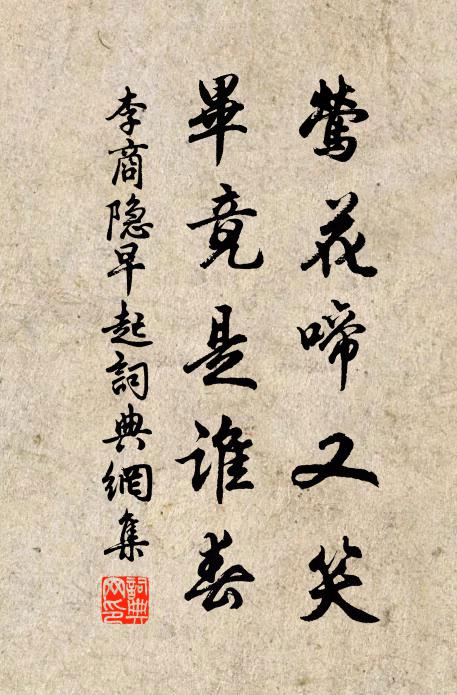 鶯花啼又笑
畢竟是誰春
李商隐早起詞典網集
詞典网印